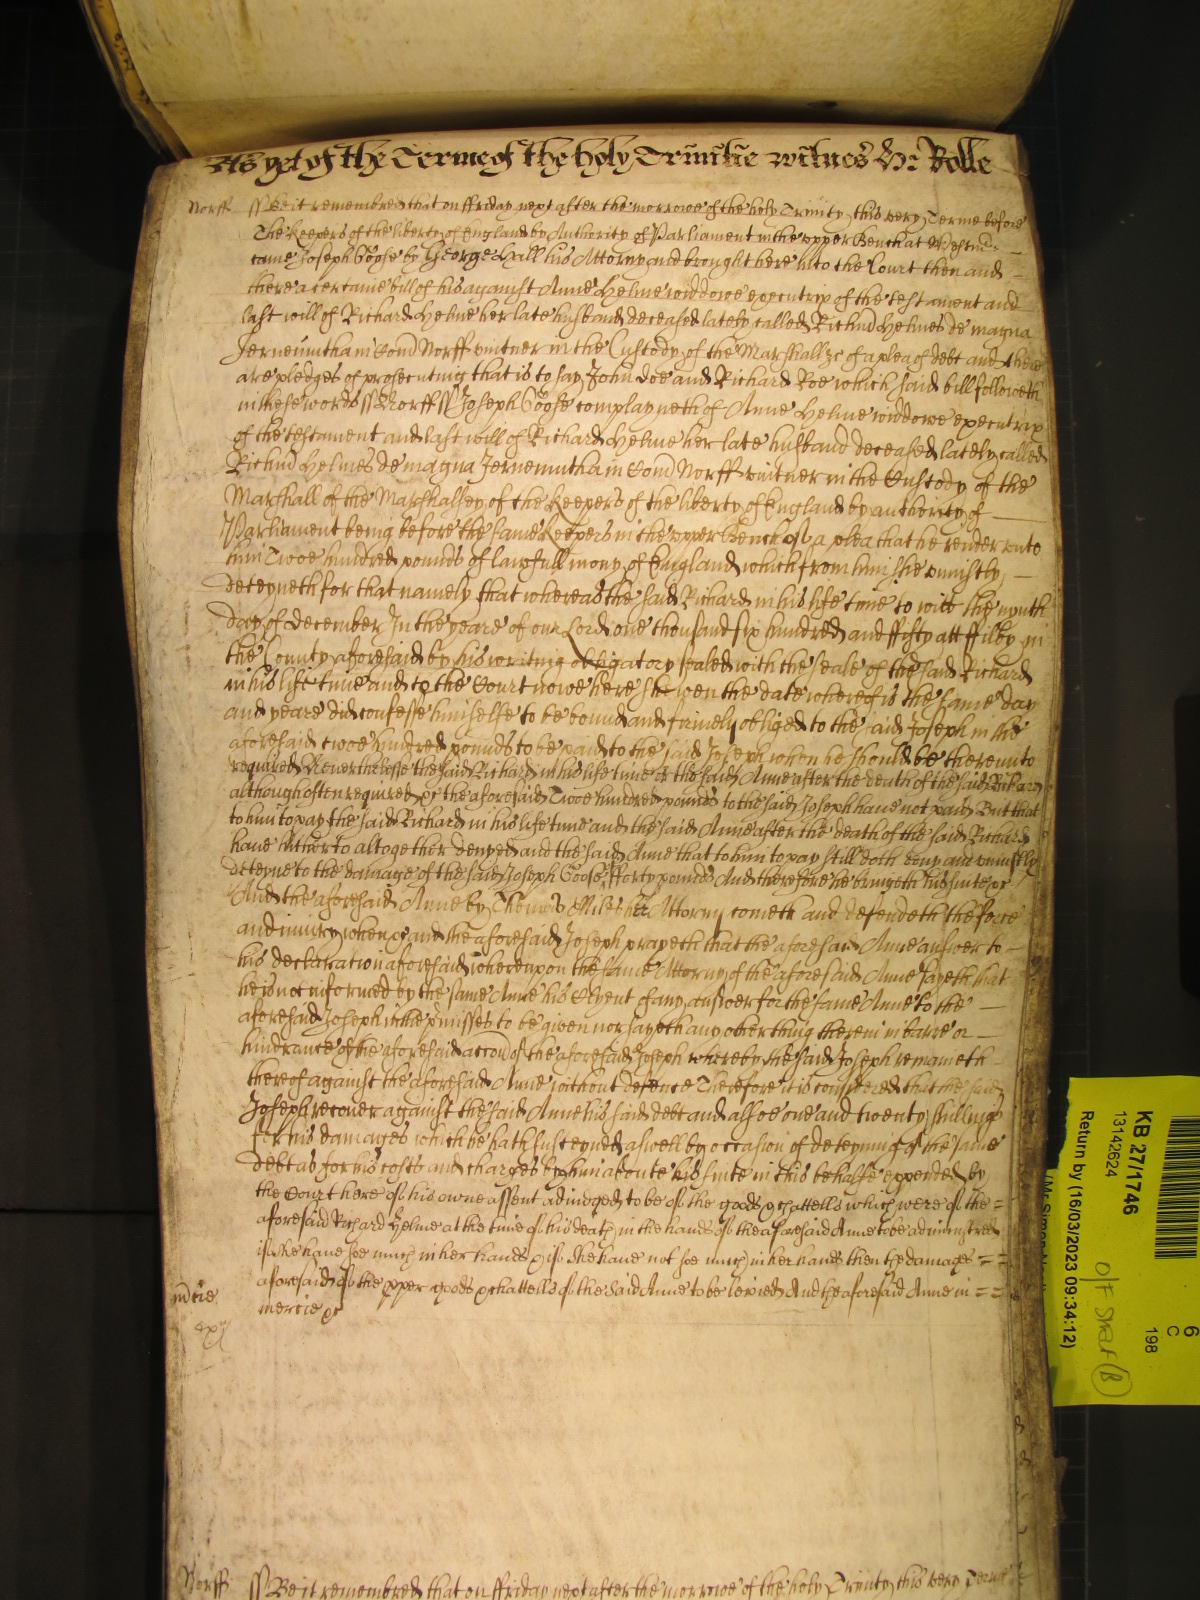 As yet of the Terme of the holy Trinitie witnes H: Rolle
Norff ss Be it remembred that on ffriday next after the morrowe of the holy Trinity this very Terme before
The Keepers of the liberty of England by Authority of Parliament in the upper Bench at Westmr
came Joseph Goose by George Hall his Attorny and brought here into the Court then and
there a certaine bill of his against Anne Helme widdowe executrix of the testament and
last will of Richard Helme her late husband deceased lately called Richud Helmes de magna
Jernemutha in Com Norff vintner in the Custody of the Marshall &c of a plea of debt and there
are pledges of prosecuting that is to say John Doe and Richard Roe which said bill followeth
in these words ss Norff ss Joseph Goose complayneth of Anne Helme widdowe executrix
of the testament and last will of Richard Helme her late husband deceased lately called
Richud Helmes de magna Jernemutha in Com Norff vintner in the Custody of the
Marshall of the Marshalsey of the Keepers of the liberty of England by authority of
Parliament being before the same Keepers in the upper Bench of a plea that he render unto
him Twoe hundred pounds of lawfull mony of England which from him she uniustly
deteyneth for that namely that whereas the said Richard in his life time to witt the nynth
day of december In the yeare of our Lord one thousand six hundred and ffifty att ffilby in
the County aforesaid by his writing obligatory sealed with the seale of the said Richard
in his life time and to the Court nowe here shewen the date whereof is the same day
and yeare did confesse himselfe to be bound and firmely obliged to the said Joseph in the
aforesaid twoe hundred pounds to be paid to the said Joseph when he should be thereunto
required Neverthelesse the said Richard in his life time or the said Anne after the death of the said Richard
although often required &c the aforesaid Twoe hundred pounds to the said Joseph have not paid But that
to him to pay the said Richard in his life time and the said Anne after the death of the said Richard
have hitherto altogether denyed and the said Anne that to him to pay still doth deny and uniustly
deteyne to the damage of the said Joseph Goose fforty pounds And therefore he bringeth his suite &c
And the aforesaid Anne by Thomas Miles her Attorny cometh and defendeth the force
and iniury when &c and the aforesaid Joseph prayeth that the aforesaid Anne answer to
his declaration aforesaid whereupon the same Attorny of the aforesaid Anne sayeth that
he is not informed by the same Anne his Clyent of any answer for the same Anne to the
aforesaid Joseph in the pmisses to be given nor sayeth any other thing therein in barre or
hindrance of the aforesaid accon of the aforesaid Joseph whereby the said Joseph remaineth
thereof against the aforesaid Anne without defence Therefore it is considered that the said
Joseph recover against the said Anne his said debt and alsoe one and twenty shillings
for his damages which he hath susteyned aswell by occasion of deteyning of the same
debt as for his costs and charges by him about his suite in this behalfe expended by
the Court here of his owne assent adiudged to be of the goods & chattells which were of the
aforesaid Richard Helme at the time of his death in the hands of the aforesaid Anne to be administred
if she have soe much in her hands & if she have not soe much in her hands then the damages
aforesaid of the pper goods & chattells of the said Anne to be levied And the aforesaid Anne in
mcie
mercie &c
Norff ss Be it remembred that on ffriday next after the morrowe of the holy Trinity this very Terme
KB 27/1746
13142624
Return by (16/03/2023 09:34:12)
6
C
198
O/F Shelf (B)